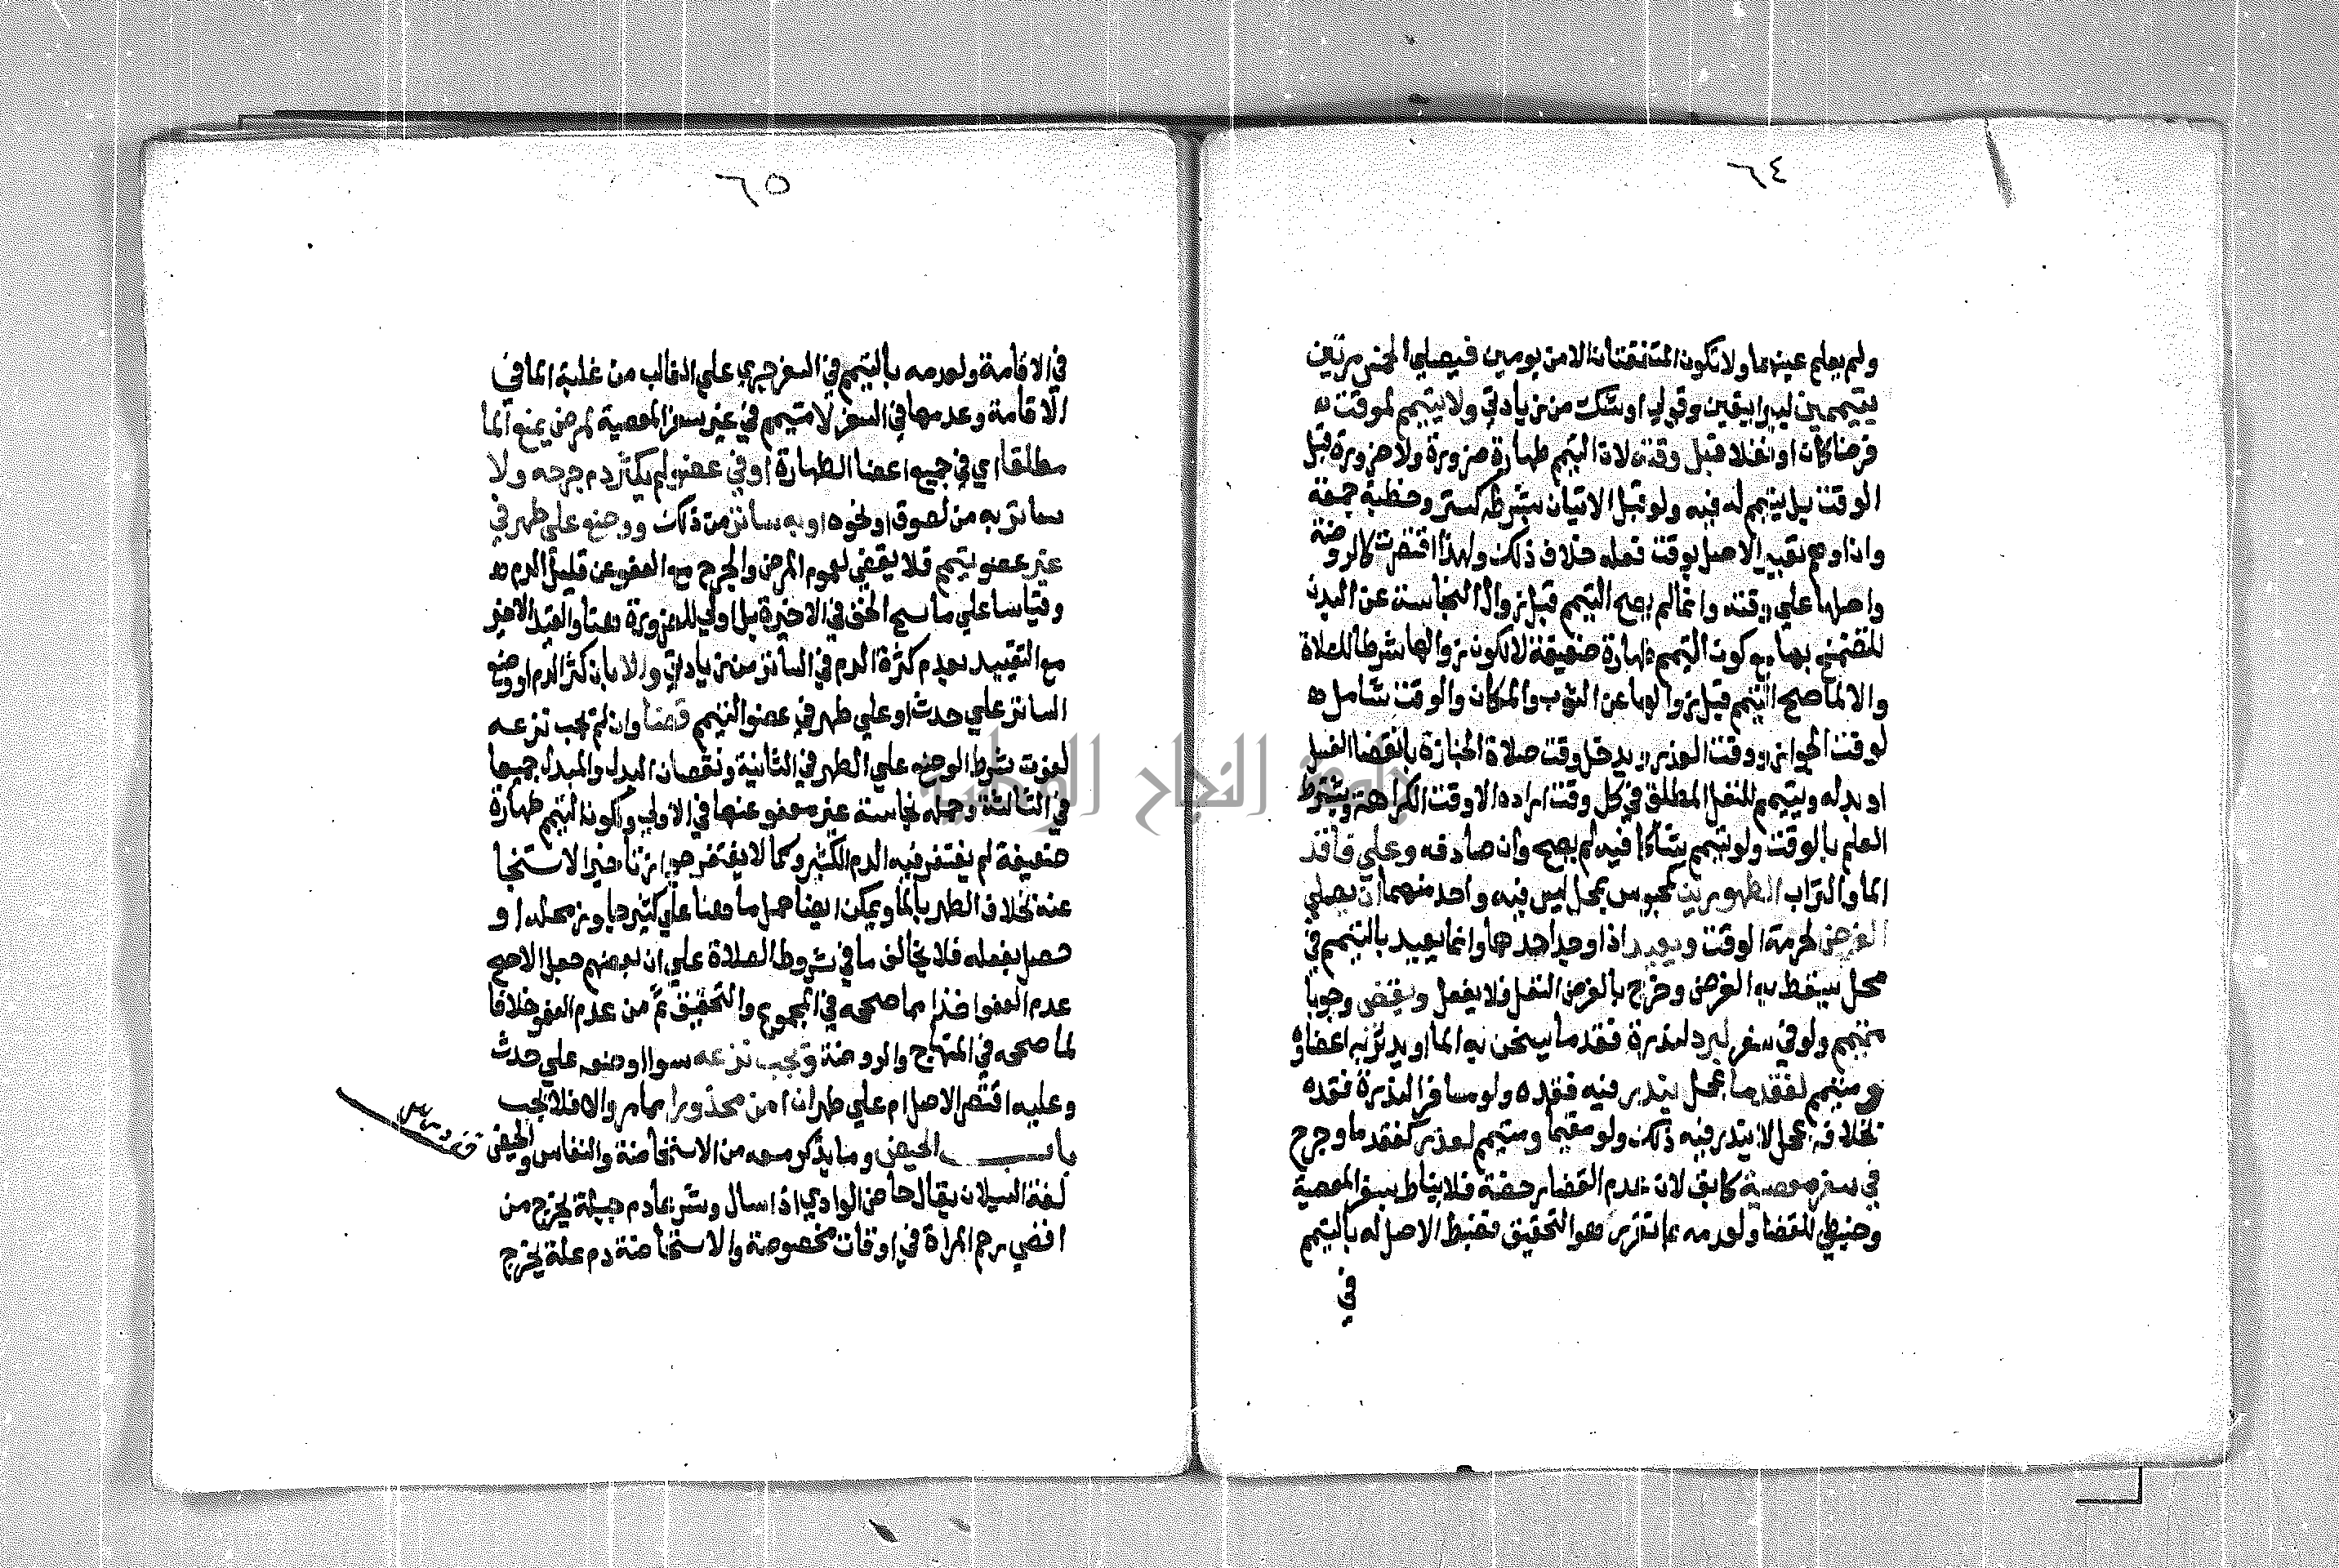 ٦٤
ولم يعلم عينهما ولا تكون المتفقتان الا من يومين فيصلي الخمس مرتين
بتيممين ليبرا بيقين وقولي او شك من زيادتي ولا يتيمم لموقت
فرضا كان او نفلا قبل وقته لان التيمم طهارة ضرورة ولا ضرورة قبل
الوقت بل يتيمم له فيه ولو قبل الاتيان بشرط كستر وخطبة جمعة
وان اوهم تعبير الاصل بوقت فعله خلاف ذلك ولهذا اقتصرت كالروضة
واصلها علي وقته وانما لم يصح التيمم قبل زوال النجاسة عن البدن
للتضمخ بها مع كون التيمم طهارة ضعيفة لا لكون زوالها شرطا للصلاة
والا لما صح التيمم قبل زوالها عن الثوب والمكان والوقت شامل
لوقت الجواز ووقت العذر ويدخل وقت صلاة الجنازة بانقضا الغسل
او بدله ويتيمم للنفل المطلق في كل وقت اراده الا وقت الكراهة ويشترط
العلم بالوقت ولو تيمم شاكا فيه لم يصح وان صادفه وعلي فاقد
الما والتراب الطهورين كمحبوس بمحل ليس فيه واحد منهما ان يصلي
الفرض لحرمة الوقت ويعيد اذا وجد احدهما وانما يعيد بالتيمم في
محل يسقط به الفرض وخرج بالفرض النفل فلا يفعل ويقضي وجوبا
متيمم ولو في سفر لبرد لندرة فقد ما يسخن به الما او يدثر به اعضاوه
ومتيمم لفقد ما بمحل يندر فيه فقده ولو مسافرا لندرة فقده
بخلافه بمحل لا يندر فيه ذلك ولو مقيما ومتيمم لعذر كفقد ما وجرح
في سفر معصية كابق لان عدم القضا رخصة فلا يناط بسفر المعصية
وضبطي للقضا ولعدمه بما تقرر هو التحقيق فضبط الاصل له بالتيمم
في
٦٥
في الاقامة ولعدمه بالتيمم في السفر جري علي الغالب من غلبة الما في
الاقامة وعدمها في السفر لا متيمم في غير سفر المعصية لمرض يمنع الما
مطلقا اي في جميع اعضا الطهارة او في عضو لم يكثر دم جرحه ولا
ساتر به من لصوق او نحوه او به ساتر من ذلك ووضع علي طهر في
غير عضو تيمم فلا يقضي لعموم المرض والجرح مع العفو عن قليل الدم
وقياسا علي ماسح الخف في الاخيرة بل اولي للضرورة هنا والقيد الاخير
مع التقييد بعدم كثرة الدم في الساتر من زيادتي والا بان كثر الدم او وضع
الساتر علي حدث او علي طهر في عضو التيمم قضا وان لم يجب نزعه
لفوت شرط الوضع علي الطهر في الثانية ونقصان البدل والمبدل جميعا
في الثالثة وحمله نجاسة غير معفو عنها في الاولي وكون التيمم طهارة
ضعيفة لم يغتفر فيه الدم الكثير كما لا يغتفر جواز تاخير الاستنجا
عنه بخلاف الطهر بالما ويمكن ايضا حمل ما هنا علي كثير جاوز محله او
حصل بفعله فلا يخالف ما في شروط الصلاة علي ان بعضهم جعل الاصح
عدم العفو اخذا مما صححه في المجموع والتحقيق ثم من عدم العفو خلافا
لما صححه في المنهاج والروضة ويجب نزعه سوا اوضعه علي حدث
وعليه اقتصر الاصل ام علي طهر ان امن محذورا مما مر والا فلا يجب
باب الحيض وما يذكر معه من الاستحاضة والنفاس والحيض
لغة السيلان يقال حاض الوادي اذا سال وشرعا دم جبلة يخرج من
اقضي رحم المراة في اوقات مخصوصة والاستحاضة دم علة يخرج
جامعة النجاح الوطنية